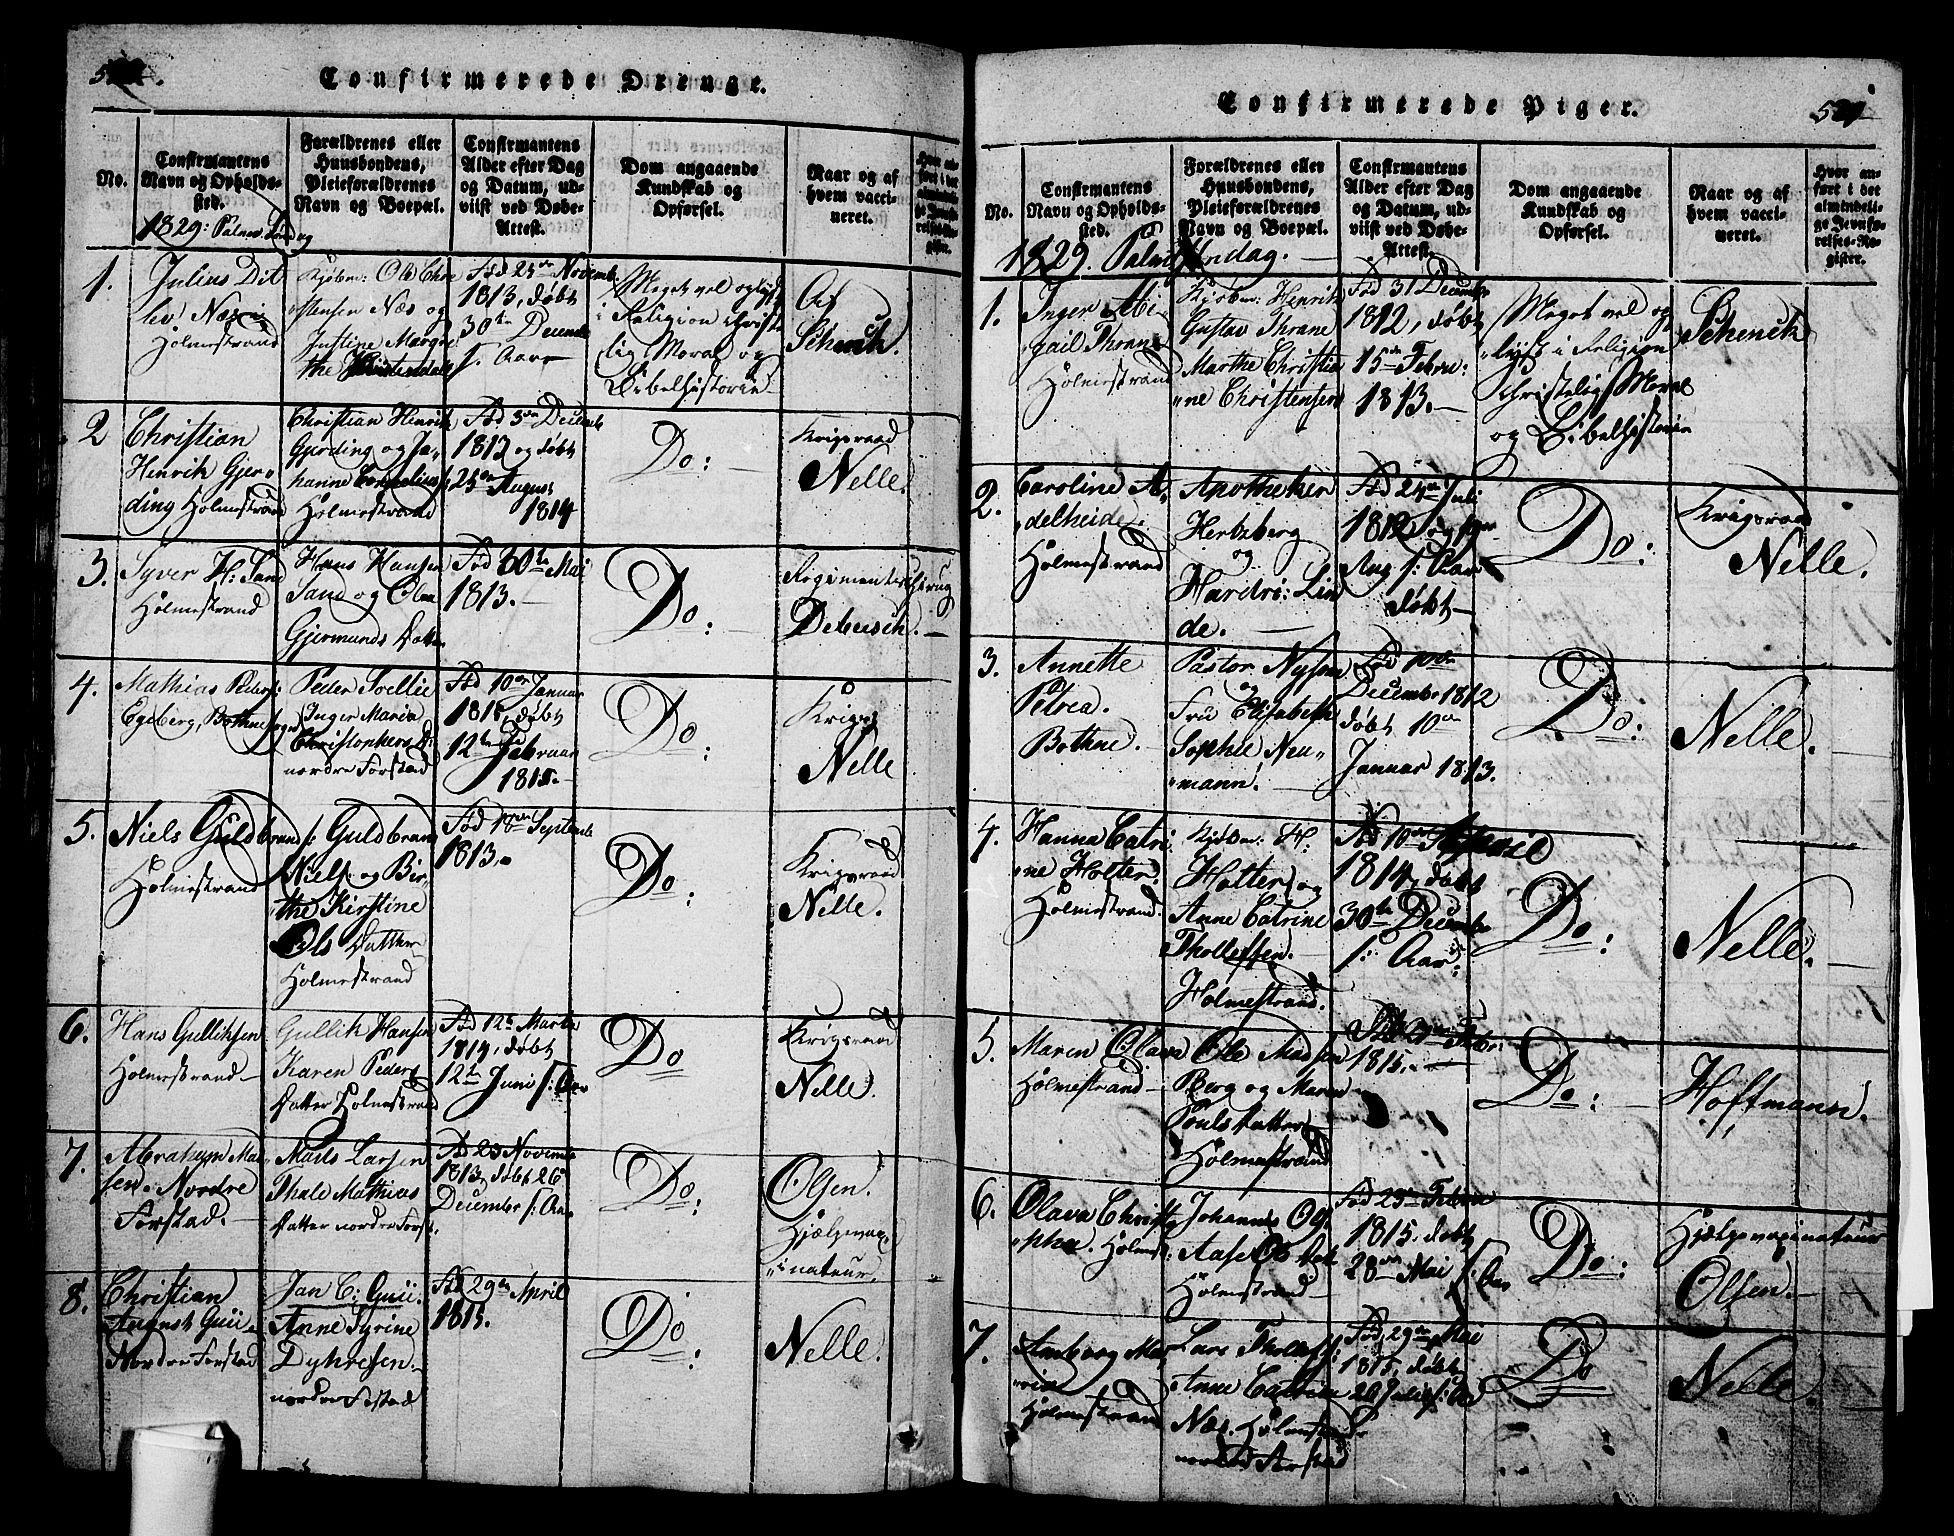 Confirmerede Drenge.
No.
Confirmantens Navn og Opholdssted.
Forældrenes eller Huusbondens, Pleieforældrenes Navn og Boepæl.
Confirmantens Alder efter Dag og Datum, udviist ved Døbe-Attest.
Dom angaaende Kundskab og Opførsel.
Naar og af hvem vaccineret.
1829: Palme Søndag
1.
Julius Dit
lev Næs
Holmestrand
Kjøbm: Ole Chri
stensen Næs og
Justine Margre
the
Fød 25de Novemb
1813, døbt
30te Decemb
s. Aar
Meget vel oplyst
i Religion christe
lig Moral og
Bibelhistorie
Af
Schenck.
2
Christian
Henrik Gjer
ding Holmestrand
Christian Henrik
Gjerding og Jo
hanne Cornelius
Holmestrand
Fød 3de Decemb
1812 og døbt
25de August
1814
Do:
Krigsraad
Nelle.
3.
Syver H: Sand
Holmestrand
Hans Hansen
Sand og Olea
Gjermunds Datter
Fød 30te Mai
1813.
Do:
Regiments Chirurg
Debusch.
4.
Mathias Peders:
Egeberg, Bothne Sogn
Peder Soellie
Inger Maria
Christophers D:
nordre Forstad
Fød 10de Januar
1815, døbt
12te Februar
1815.
Do:
Krigs
Nelle
5.
Niels Guldbrands:
Holmestrand
Guldbrand
Niels: og Bir
the Kirstine
Ols Datter
Holmestrand
Fød 18de Septemb
1813.
Do:
Krigsraad
Nelle.
6.
Hans Gulliksen
Holmestrand
Gullik Hansen
Karen Peders
Datter Holmestrand
Fød 12te Marts
1814, døbt
12te Juni s: Aar
Do
Krigsraad
Nelle.
7.
Abraham Mad
sen. Nordre
Forstad.
Mads Larsen
Thale Mathias
Datter nordre Forst.
Fød 23 Novemb
1813, døbt 26
December s: Aar
Do:
Olsen.
Hjælpevac
cinateur.
8.
Christian
August Guii
Nordre Forstad
Jan C: Guii.
Anne Syrine
Dyhresen.
nordre Forstad
Fød 29de April
1815.
Do
Nelle.
Confirmerede Piger.
No.
Confirmantens Navn og Opholdssted.
Forældrenes eller Huusbondens, Pleieforældrenes Navn og Boepæl.
Confirmantens Alder efter Dag og Datum, udviist ved Døbe-Attest.
Dom angaaende Kundskab og Opførsel.
Naar og af hvem vaccineret.
Hvor anført i det almindelige Jevnførelses-Register.
1829. Palme Søndag.
1.
Inger Abi
gail Thrane
Holmestrand
Kjøbm: Henrik
Gustav Thrane
Marthe Christia
ne Christensen
Fød 31 Decemb
1812, døbt
15de Febru:
1813.
Meget vel og
lyst i Religion
christelig Moral
og Bibelhistorie
Schenck
2.
Caroline A
delheide
Holmestrand
Apotheker
Hertzberg
og
Hardri: Lin
de.
Fød 24de Juli
døbt
Do:
Krigsraad
Nelle.
3.
Annette
Petrea
Bothne.
Pastor Nysom
og
Fru Elisabeth
Sophie Neu
mann.
Fød
December 1812
døbt 10de
Januar 1813.
Do:
Nelle.
4.
Hanna Catri
ne Holter.
Holmestrand.
Kjøbm: H:
Holter og
Anne Catrine
Thollefsen.
Holmestrand.
Fød 10de April
1814, døbt
30te Decemb
s: Aar:
Do:
Nelle.
5.
Maren Olava
Holmestrand
Ole Madsen
Berg og Maren
Pouls datter
Holmestrand
Febr:
1815.
Do:
Hoffmann.
6.
Olava Christ
opha. Holmest:
Johannes Ols:
Aase Ols dat
Holmestrand
Fød 23de Febru
1815. døbt
28de Mai s: Aar
Do:
Hjælpevaccinateur
Olsen.
7.
Ma
ria
Holmestrand
Lars Thollefs:
Anne Catrine
Næs. Holmestrand
nordre Forstad
Fød 29de Mai
1815, døbt
Do
Nelle.